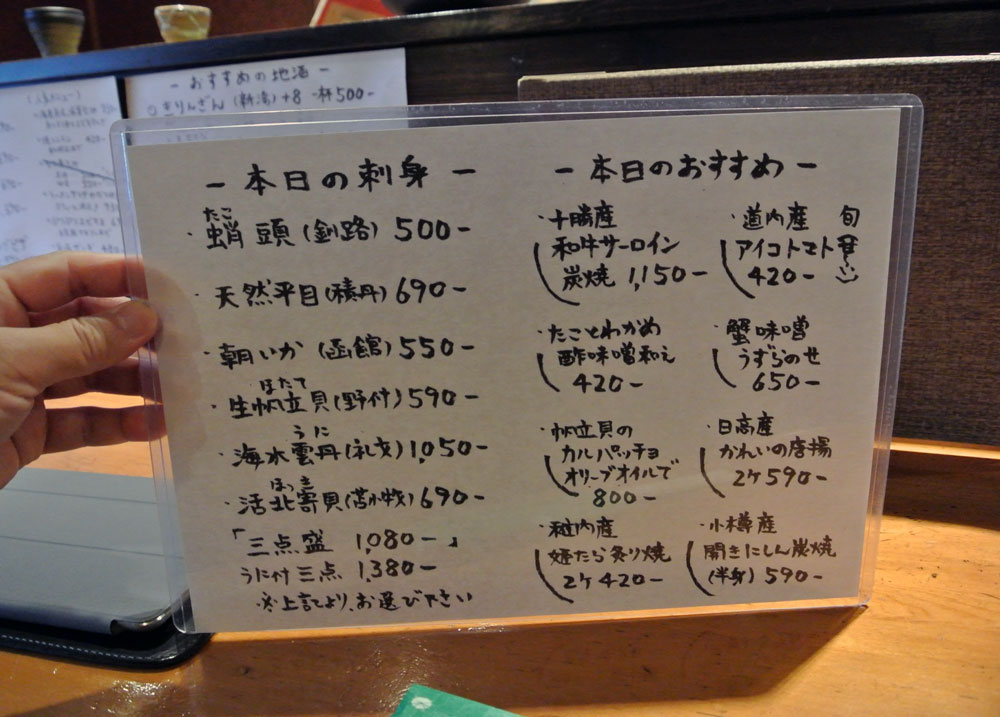 - おすすめの地酒 -
◎きりんざん (新潟) +8 一杯500-
(人気メニュー)
- 本日の刺身 -
たこ
・蛸頭(釧路) 500-
・天然平目(積丹) 690-
・朝いか (函館) 550-
ほたて
・生帆立貝(野付) 590-
うに
・海水雲丹(礼文) 1,050-
ほっき
・活北寄貝(苫小牧) 690-
「三点盛 1,080-」
うに付三点 1,380-
※上記より、お選び下さい
- 本日のおすすめ -
・十勝産
和牛サーロイン
炭焼 1,150-
・たことわかめ
酢味噌和え
420-
・帆立貝の
カルパッチョ
オリーブオイルで
800-
・稚内産
姫たら炙り焼
2ケ 420-
・道内産 旬
アイコトマト
420-
・蟹味噌
うずらのせ
650-
・日高産
かれいの唐揚
2ケ 590-
・小樽産
開きにしん炭焼
(半身) 590-